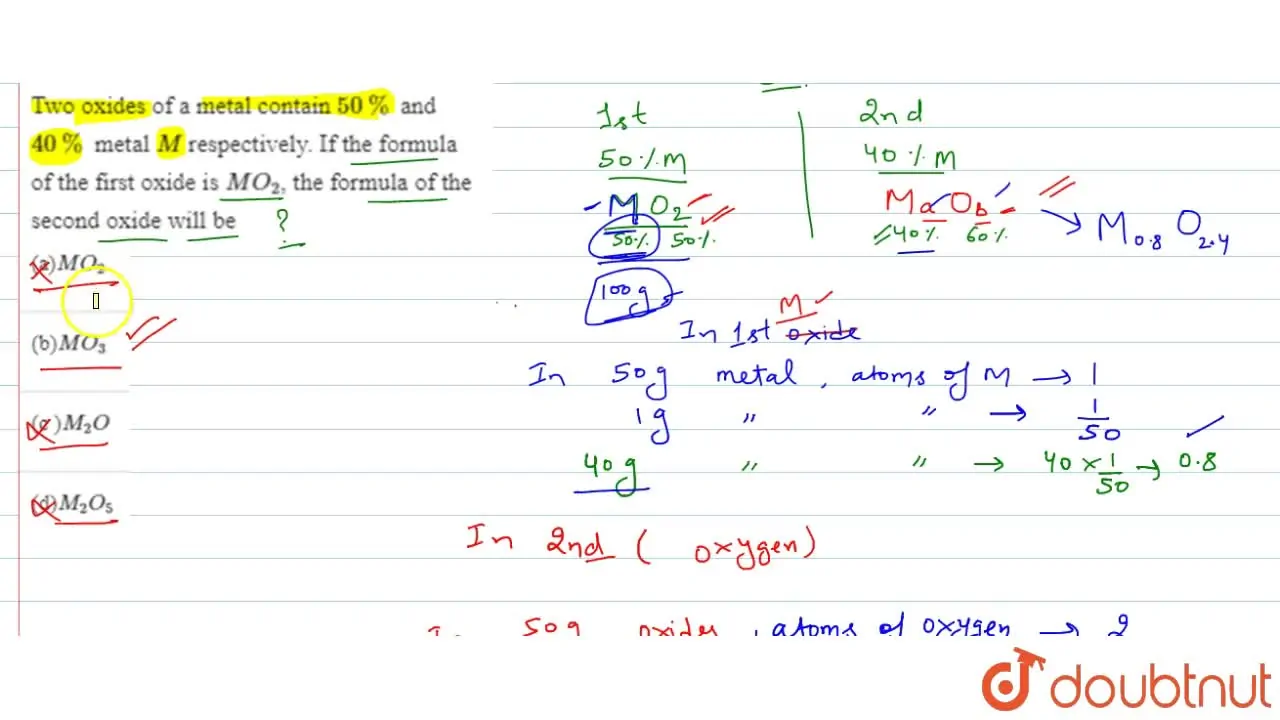 Two oxides of a metal contain 50 % and
40 % metal M respectively. If the formula
of the first oxide is MO₂, the formula of the
second oxide will be ?
(a)MO₂
(b)MO₃
(c)M₂O
(d)M₂O₅
1st
50 % M
M O₂
50% 50%
100g
2nd
40 % M
Ma Ob
40% 60%
M0.8 O2.4
M
In 1st oxide
In 50g metal, atoms of M → 1
1g " " → 1/50
40g " " → 40 × 1/50 → 0.8
In 2nd ( oxygen)
In 50g oxides, atoms of oxygen → 2
doubtnut